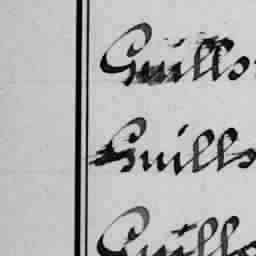 Guillo
Guillo
Guillo